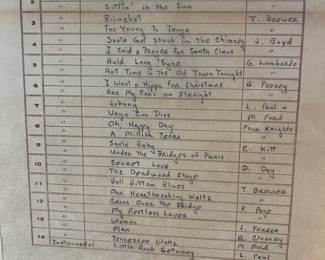 2 " Sittin' in the Sun "
3 " Ricochet T. Brewer
" Too Young To Tango "
4 " Santa Got Stuck in the Chimney J. Boyd
" I Said a Prayer for Santa Claus "
5 " Auld Lang Syne G. Lombardo
" Hot Time in the Old Town Tonight "
6 " I Want a Hippo for Christmas G. Peevey
" Are My Ears on Straight "
7 " Johnny L. Paul
" Vaya Con Dios M. Ford
8 " Oh Happy Day Four Knights
" A Million Tears "
9 " Santa Baby E. Kitt
" Under the Bridges of Paris "
10 " Secret Love D. Day
" The Deadwood Stage "
11 " Bell Bottom Blues T. Brewer
" One Heartbreaking Waltz "
12 " Cross Over the Bridge P. Page
" My Restless Lover "
13 " Woman J. Ferrer
" Man R. Clooney
14 Tennessee Waltz M. Ford
Instrumental Little Rock Getaway L. Paul